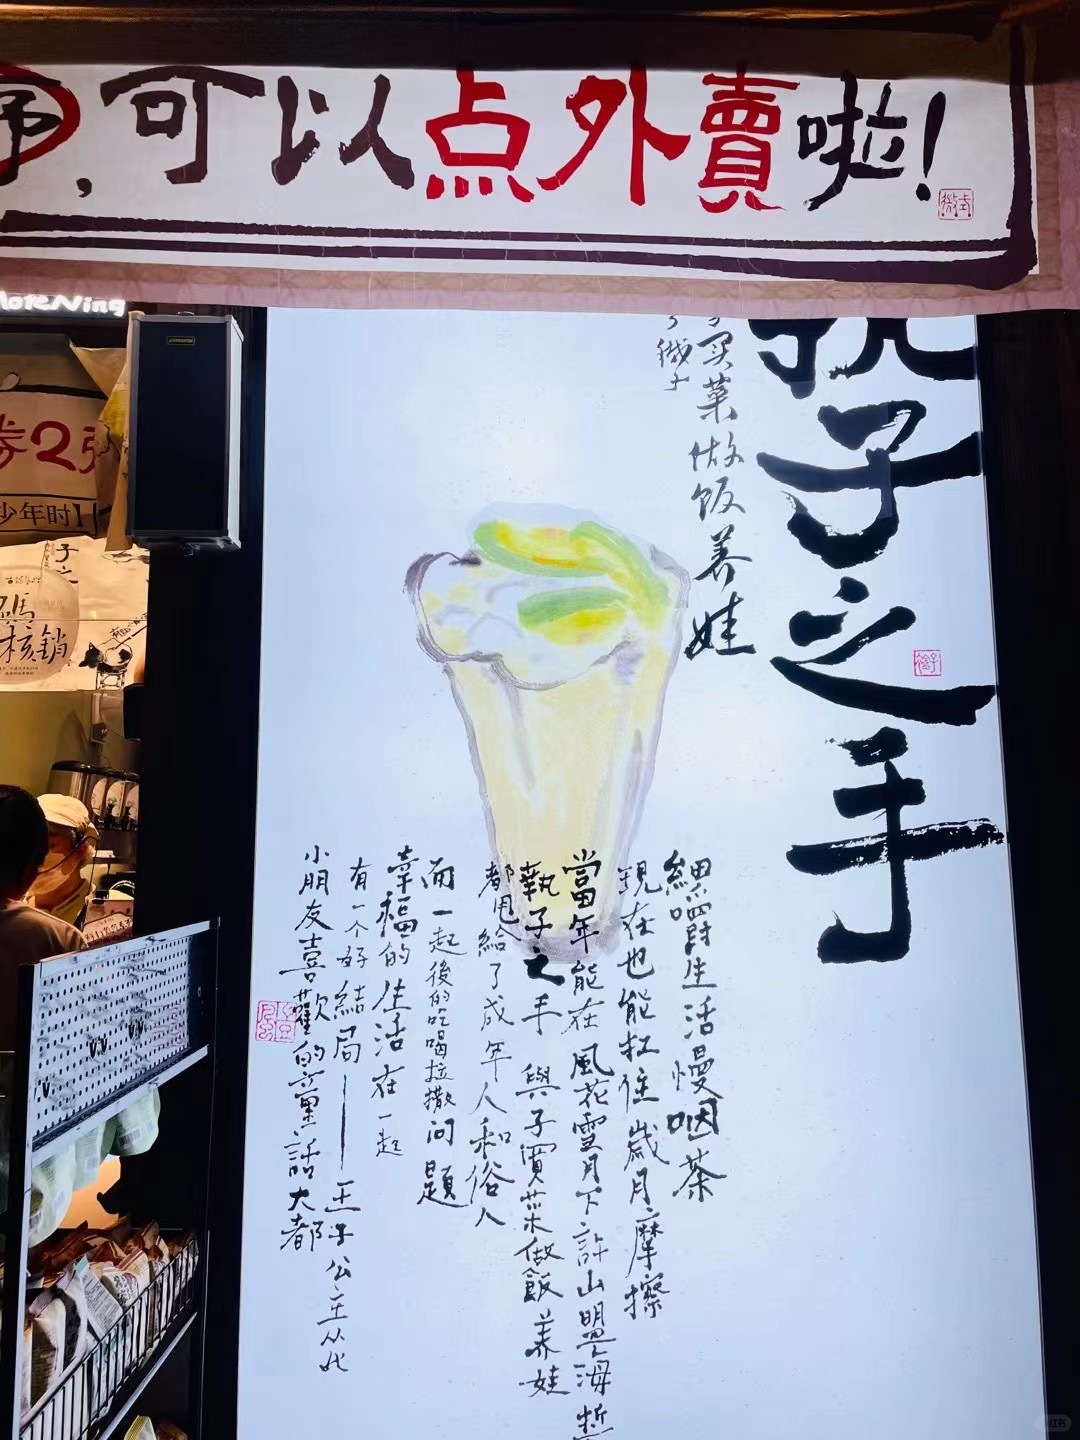 ,可以点外賣啦!
子之手
买菜做饭养娃
券2
少年时】
子之
碼
核銷
小朋友喜歡的童話大都
有一个好結局——王子公主从此
幸福的生活在一起
而一起後的吃喝拉撒问題
都甩給了成年人和俗人
執子之手 與子買菜做飯养娃
當年能在風花雪月下許山盟海誓
現在也能扛住歲月摩擦
細嚼生活慢咽茶
小红书